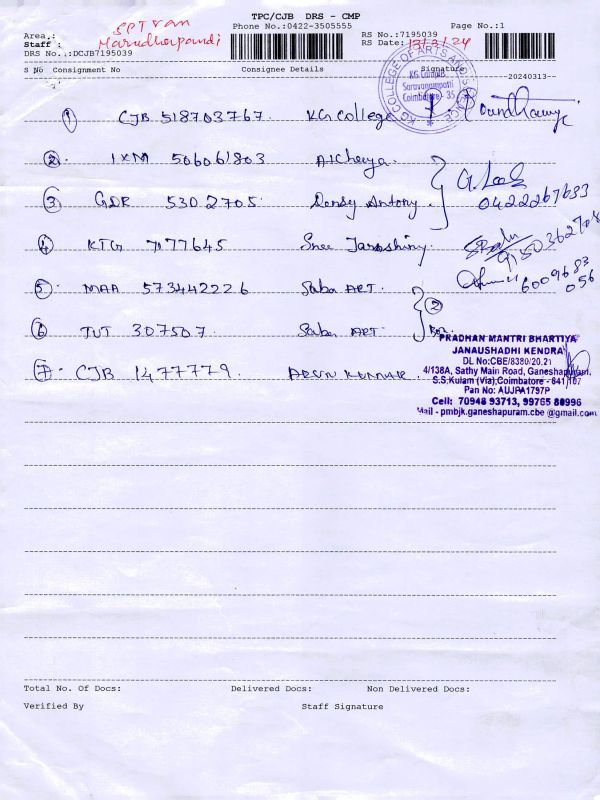 TPC/CJB DRS - CMP
Phone No.:0422-3505555 Page No.:1
Area.: SPT Van
Staff : Marudhapandi
RS No.:7195039
RS Date: 13/3/24
DRS No.:DCJB7195039
S No Consignment No Consignee Details Signature
20240313
1 CJB 518703767 KG College
2 IXM 506061803
3 GDR 5302705 Antony
0422267633
4 KTG 7177645 Sree
9150362708
5 MAA 573442226 Saba ART 2
6009683
056
6 TUT 307507 Saba ART
7 CJB 1477779 ARUN KUMAR
KG COLLEGE OF ARTS AND SCIENCE
KG Campus
Saravanampatti
Coimbatore - 35
PRADHAN MANTRI BHARTIYA
JANAUSHADHI KENDRA
DL No:CBE/8380/20,21
4/138A, Sathy Main Road, Ganeshapuram,
S.S.Kulam (Via),Coimbatore - 641 107
Pan No: AUJPA1797P
Cell: 70948 93713, 99765 80996
Mail - pmbjk.ganeshapuram.cbe @gmail.com
Total No. Of Docs: Delivered Docs: Non Delivered Docs:
Verified By Staff Signature